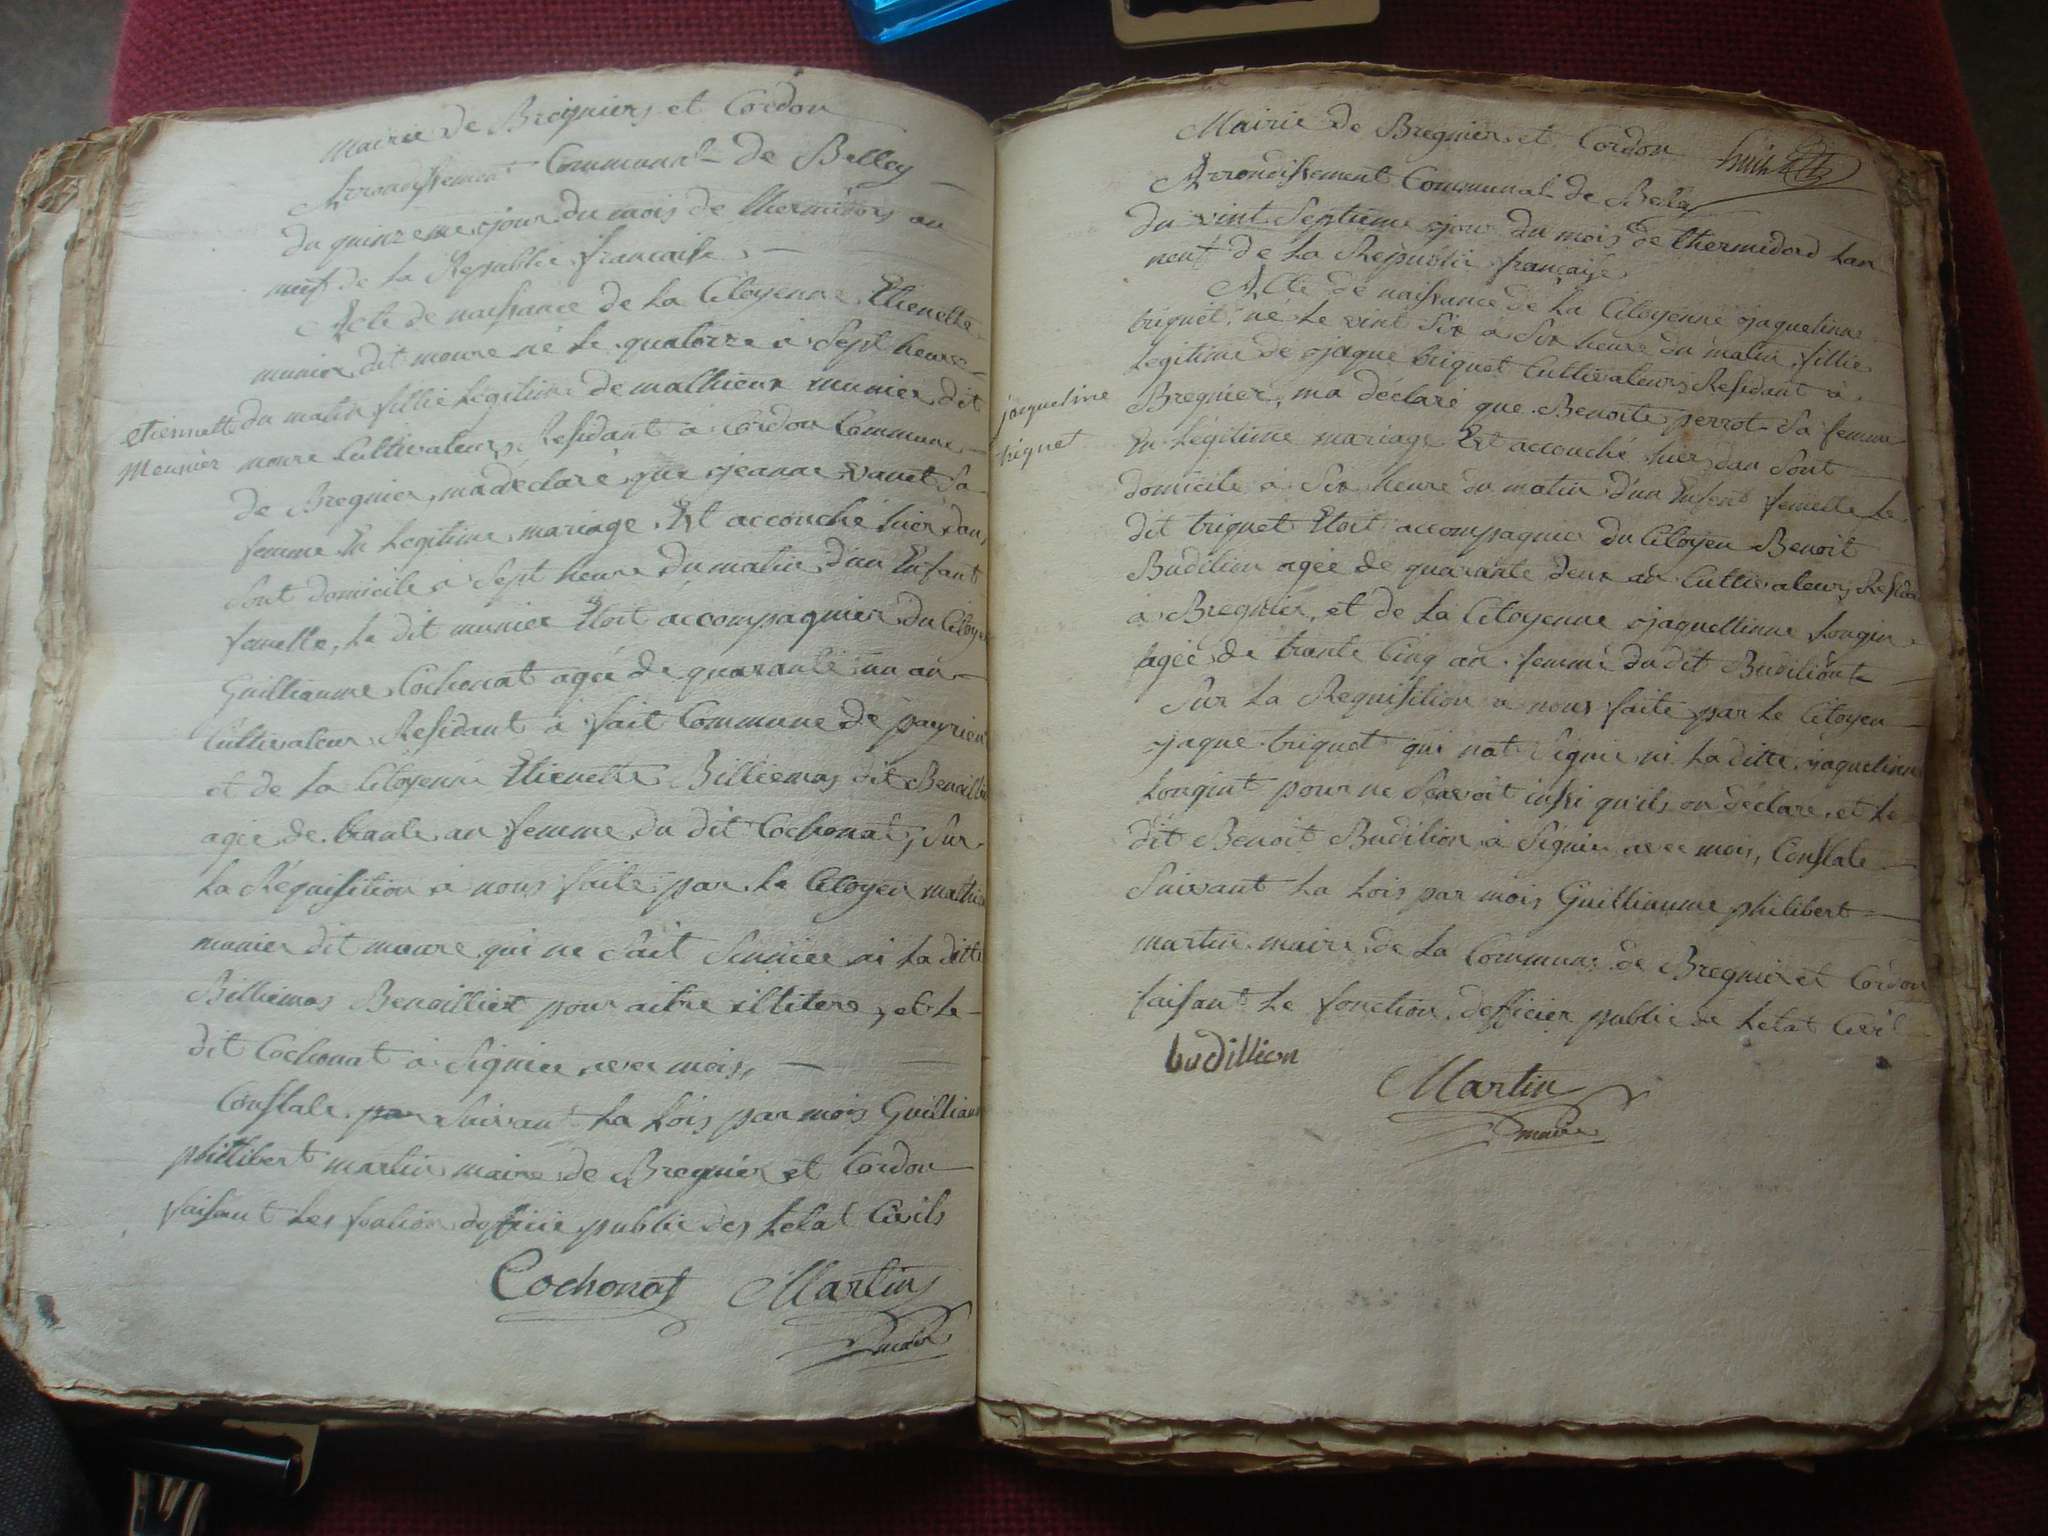 Mairie de Bregniers et Cordon
Arrondissement Communal de Belley
du quinzeme jour du mois de thermidors an
neuf de la Republic francaise
Acte de naissance de la Citoyenne Etienette
munier dit moure né le quatorze à Sept heure
du matin fillie légitime de mathieux munier dit
etiennette
Meunier
moure Cultivateurs Residant à Cordon Commune
de Bregnier, ma déclaré que jeanne vanet Sa
femme En legitime mariage Est accouché hier dan
Sont domicile à Sept heure du matin d'un Enfant
femelle, le dit munier Etoit accompagnier du Citoye
Guilliaume Cochonat agée de quarante un an
Cultivateur Residant à fait Commune de peyrieu
et de la Citoyenne Etienette Billiemas dit Benoillie
agée de trante an femme du dit Cochonat, Sur
la Réquisition à nous faite par le Citoyen mathie
munier dit moure qui ne Sait Sinnier ni la ditte
Billiemas Benoilliet pour aitre illitere, et le
dit Cochonat à Signier avec mois,
Constale par Suivant la Lois par mois Guilliaum
philibert martin maire de Bregnier et Cordon
faisant les fontion doficie public des letat Civils
Cochonat Martin
maire
Mairie de Bregnier et Cordon
Arrondissement Communal de Bela
du vint Septieme jour du mois de thermidord lan
neuf de la Republic française
Acte de naissance de la Citoyenne jaquelinne
triquet, né le vint Six à Six heure du matin fillie
légitime de jaque triquet Cultivateurs Residant à
jacqueline
triquet
Bregnier, ma déclaré que Benoite perrot Sa femme
En légitime mariage Est accouché hier dan Sont
domicile à Six heure du matin d'un Enfent femelle le
dit triquet Etoit accompagnier du Citoyen Benoit
Budilion agée de quarante deux an Cultivateurs Resida
à Bregnier, et de la Citoyenne jaquellinne Longin
agée de trante Cinq an femme du dit Budilion
Sur la Requisition à nous faite par le Citoyen
jaque triquet qui nat Signie ni la ditte jaquelinne
Longint pour ne Savoit insi qu'ils on déclare, et le
dit Benoit Budilion à Signier avec mois, Constale
Suivant la Lois par mois Guilliaume philibert
martin maire de la Commune de Bregnier et Cordon
faisant le fonction dofficier public de letat Civil
budillion
Martin
maire